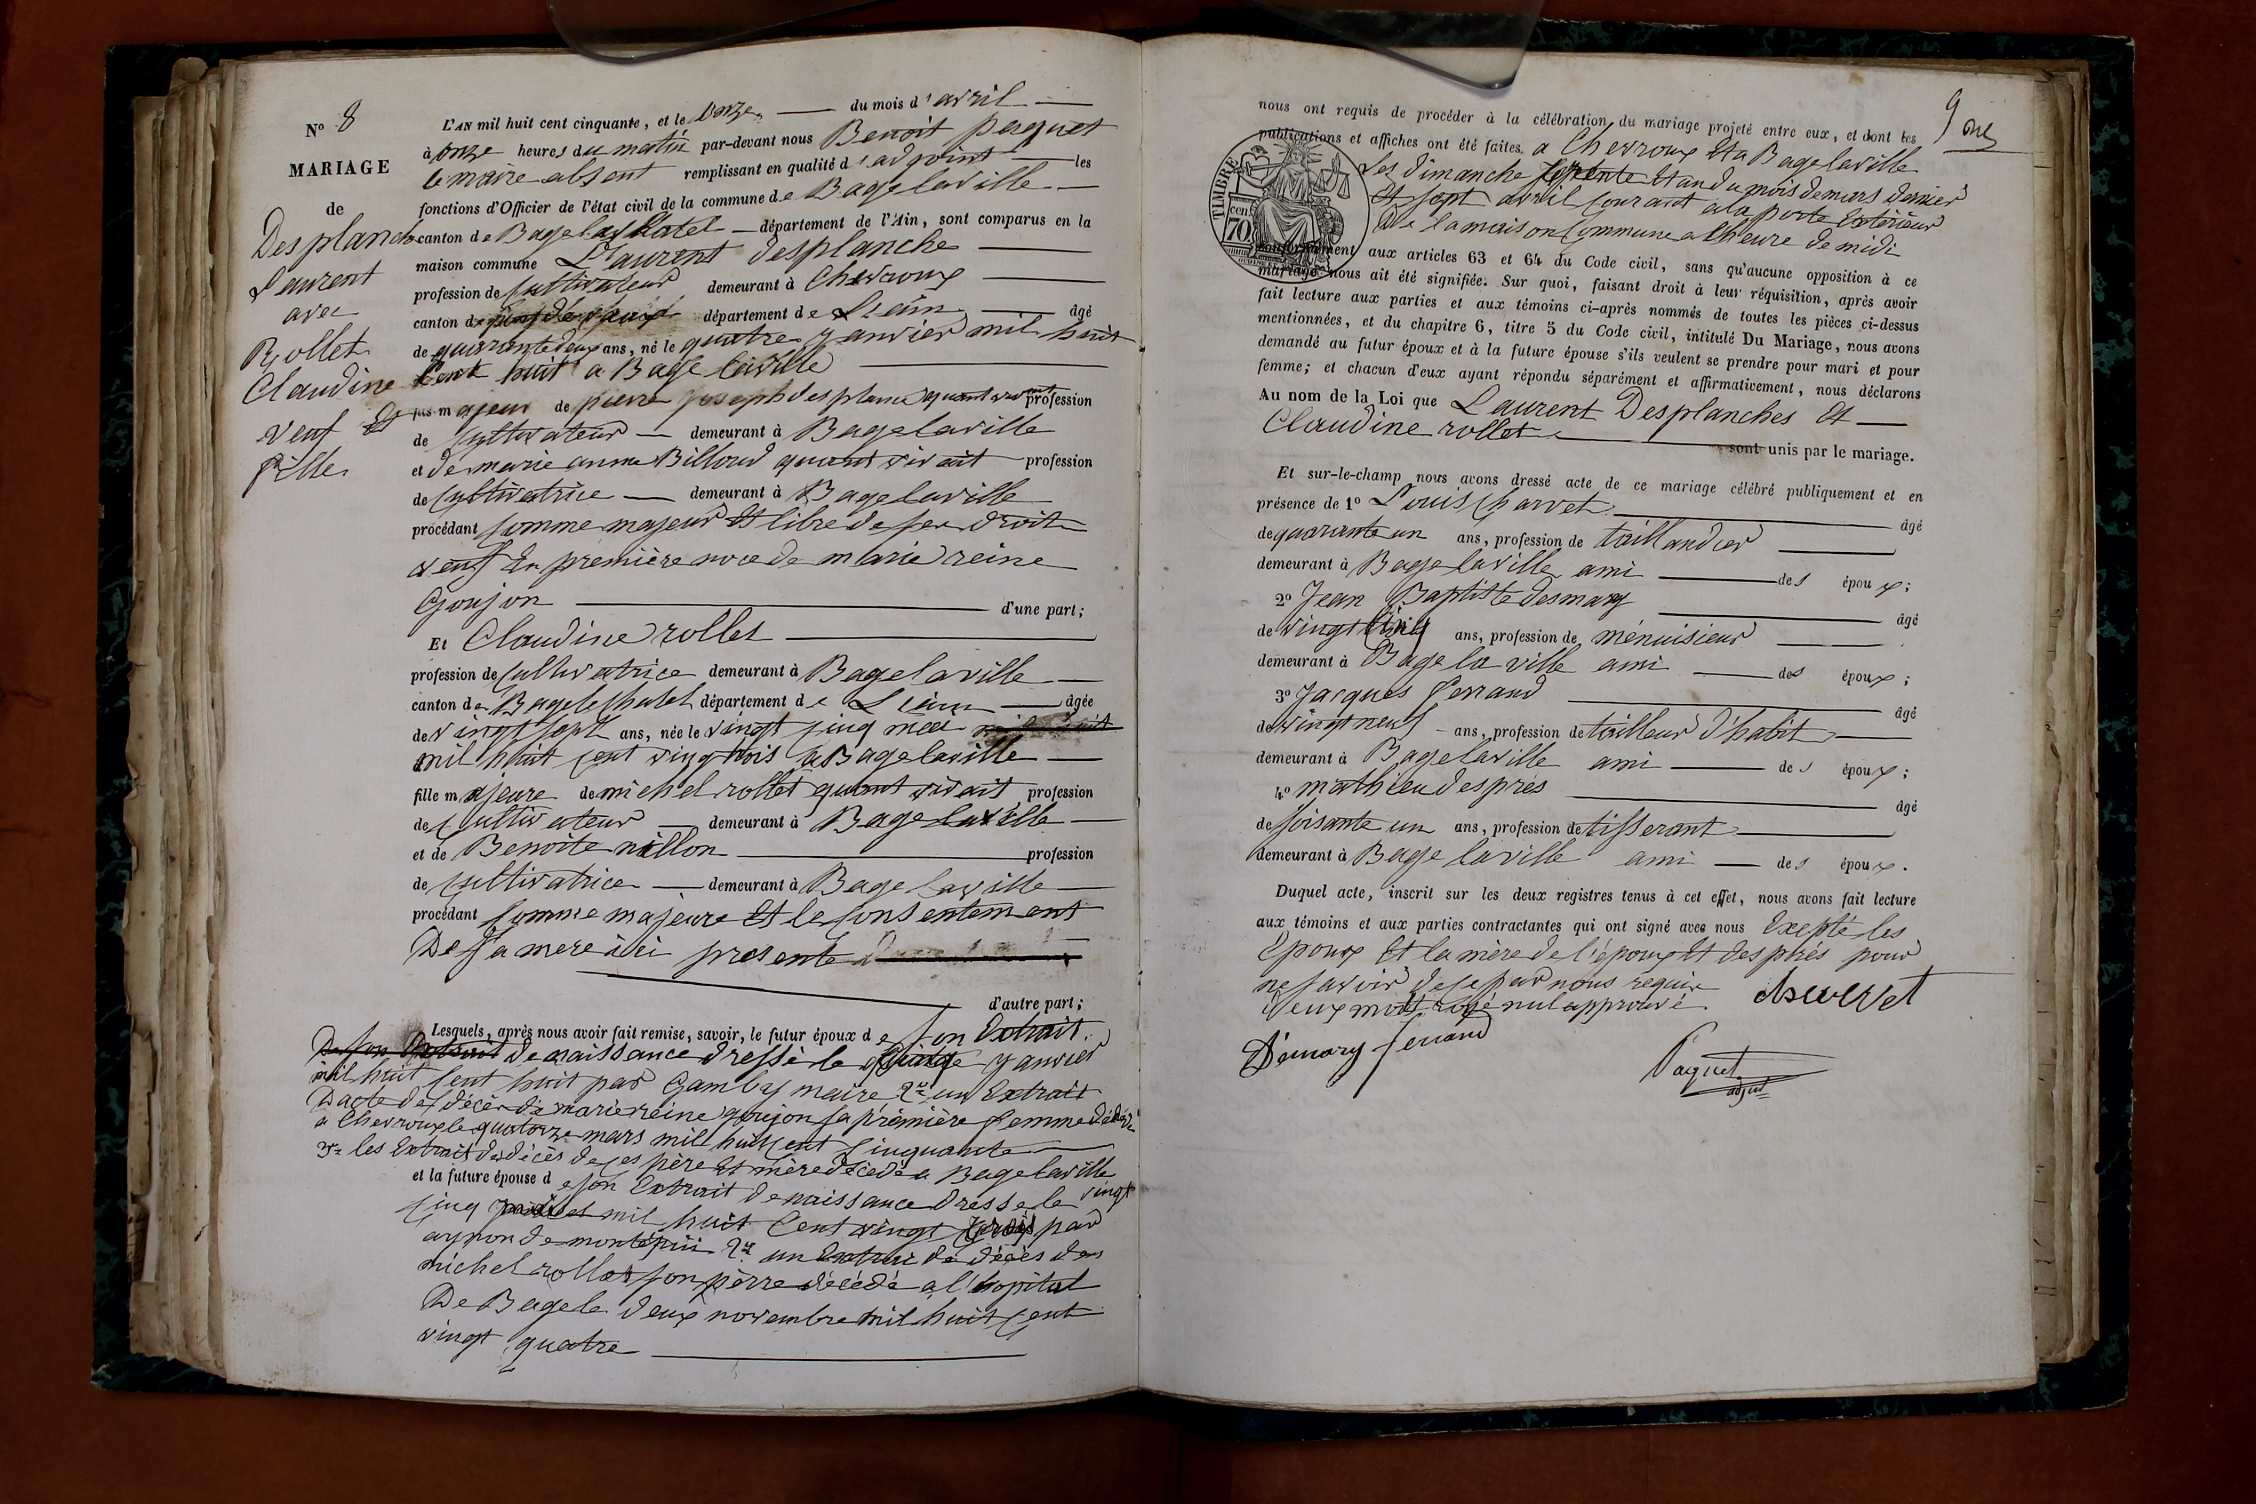 N° 8
MARIAGE
de
Desplanche
Laurent
avec
Rollet
Claudine
veuf et
fille
L'AN mil huit cent cinquante, et le onze du mois d'avril
à onze heures du matin par-devant nous Benoit paquet
le maire absent remplissant en qualité d'adjoint les
fonctions d'Officier de l'état civil de la commune de Bage laville
canton de Bage le chatel département de l'Ain, sont comparus en la
maison commune Laurent desplanche
profession de cultivateur demeurant à Chevroux
canton de pont de vaux département de Lain âgé
de quarante deux ans, né le quatre janvier mil huit
cent huit a Bage laville
fils majeur de pierre joseph desplanche quant vivait profession
de cultivateur demeurant à Bage laville
et de marie anne Billoud quant vivait profession
de cultivatrice demeurant à Bage laville
procédant comme majeur et libre de ses droit
veuf En première noce de marie reine
Goujon d'une part;
Et Claudine rollet
profession de cultivatrice demeurant à Bage laville
canton de Bage le chatel département de Lain âgée
de vingt sept ans, née le vingt cinq mai
mil huit cent vingt trois a Bage laville
fille majeure de michel rollet quant vivait profession
de cultivateur demeurant à Bage laville
et de Benoite nillon profession
de cultivatrice demeurant à Bage laville
procédant comme majeure et le consentement
De sa mere ici presente
d'autre part;
Lesquels, après nous avoir fait remise, savoir, le futur époux de son Extrait
De son Extrait de naissance dressé le janvier
mil huit cent huit par Gamby maire 2° un Extrait
Dacte de décès de marie reine goujon sa première femme décédé
a Chevroux le quatorze mars mil huit cent cinquante
3° les Extrait de décès de ses père et mère décédé a Bage laville
et la future épouse de son Extrait de naissance dressé le vingt
cinq mil huit cent vingt trois par
aynon de montépin 2° un Extrait de décès de
michel rollet son père décédé a l'hopital
De Bage le deux novembre mil huit cent
vingt quatre
9
nous ont requis de procéder à la célébration du mariage projeté entre eux, et dont les
publications et affiches ont été faites a Chevroux et a Bage laville
Les dimanche trente et un du mois de mars dernier
et sept avril courant a la porte Extérieur
De la maison commune a lheure de midi
TIMBRE
cen
70
conformément aux articles 63 et 64 du Code civil, sans qu'aucune opposition à ce
mariage nous ait été signifiée. Sur quoi, faisant droit à leur réquisition, après avoir
fait lecture aux parties et aux témoins ci-après nommés de toutes les pièces ci-dessus
mentionnées, et du chapitre 6, titre 5 du Code civil, intitulé Du Mariage, nous avons
demandé au futur époux et à la future épouse s'ils veulent se prendre pour mari et pour
femme; et chacun d'eux ayant répondu séparément et affirmativement, nous déclarons
Au nom de la Loi que Laurent Desplanches et
Claudine rollet
sont unis par le mariage.
Et sur-le-champ nous avons dressé acte de ce mariage célébré publiquement et en
présence de 1° Louis Charvet âgé
de quarante un ans, profession de taillandier
demeurant à Bage laville ami des époux;
2° Jean Baptiste desmary âgé
de vingt cinq ans, profession de ménuisieur
demeurant à Bage la ville ami des époux;
3° Jacques ferrand âgé
de vingt neuf ans, profession de tailleur d'habit
demeurant à Bage laville ami des époux;
4° mathieu després âgé
de soisante un ans, profession de tisserant
demeurant à Bage laville ami des époux.
Duquel acte, inscrit sur les deux registres tenus à cet effet, nous avons fait lecture
aux témoins et aux parties contractantes qui ont signé avec nous Excepté les
Epoux et la mère de l'époux et després pour
ne savoir de ce par nous requis
Deux mots rayé nul approuvé charvet
Démary ferrand
Paquet
adjoint